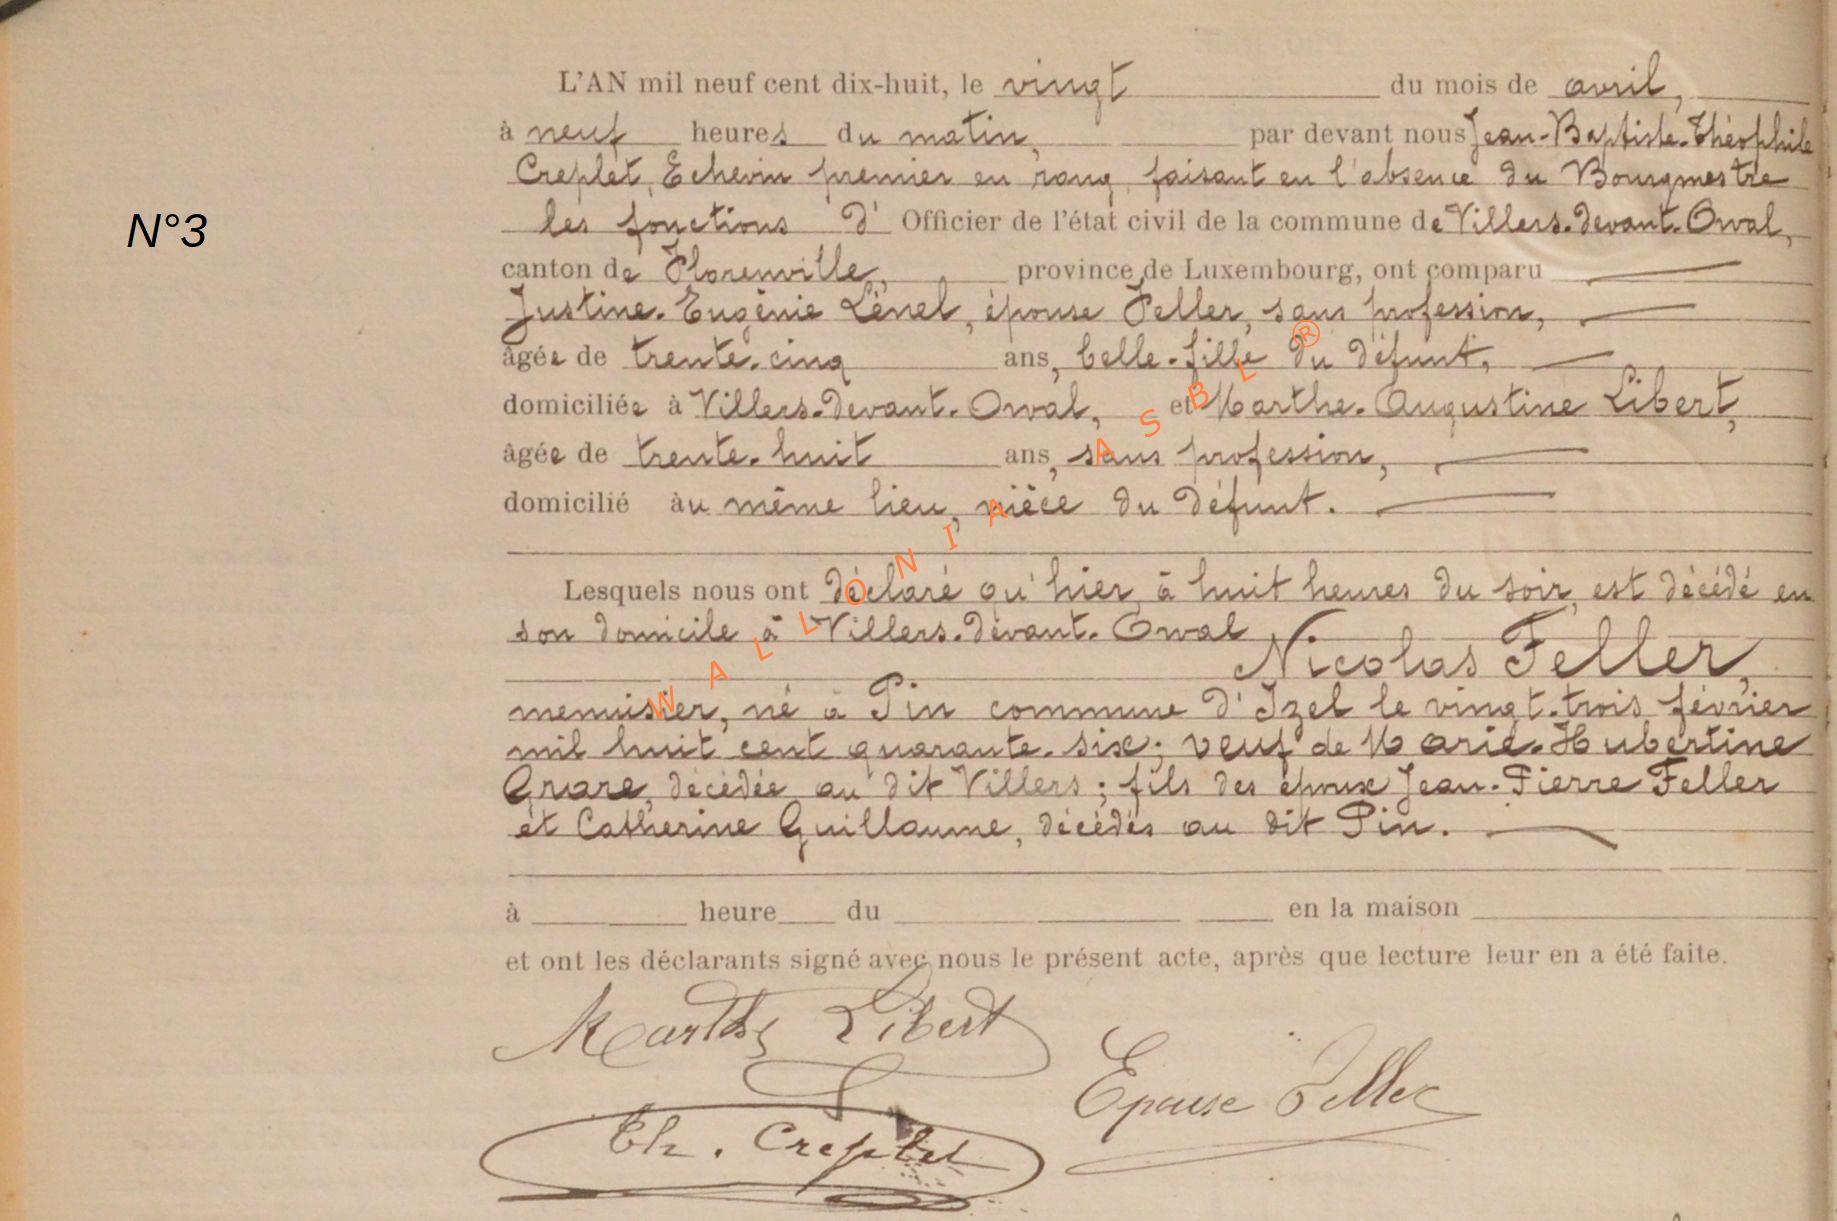 L'AN mil neuf cent dix-huit, le vingt du mois de avril,
à neuf heures du matin, par devant nous Jean-Baptiste-Théophile
Creplet, Echevin premier en rang, faisant en l'absence du Bourgmestre
N°3
les fonctions d'Officier de l'état civil de la commune de Villers-devant-Orval,
canton de Florenville, province de Luxembourg, ont comparu
Justine-Eugénie Lénel, épouse Feller, sans profession,
âgée de trente-cinq ans, belle-fille du défunt,
domiciliée à Villers-devant-Orval, et Marthe-Augustine Libert,
âgée de trente-huit ans, sans profession,
domicilié au même lieu, nièce du défunt.
Lesquels nous ont déclaré qu'hier, à huit heures du soir, est décédé en
son domicile à Villers-devant-Orval
Nicolas Feller,
menuisier, né à Pin commune d'Izel le vingt-trois février
mil huit cent quarante-six; veuf de Marie-Hubertine
Grare, décédée au dit Villers; fils des époux Jean-Pierre Feller
et Catherine Guillaume, décédés au dit Pin.
à heure du en la maison
et ont les déclarants signé avec nous le présent acte, après que lecture leur en a été faite.
Marthe Libert
Epouse Feller
Th. Creplet
WALLONIA ASBL ®